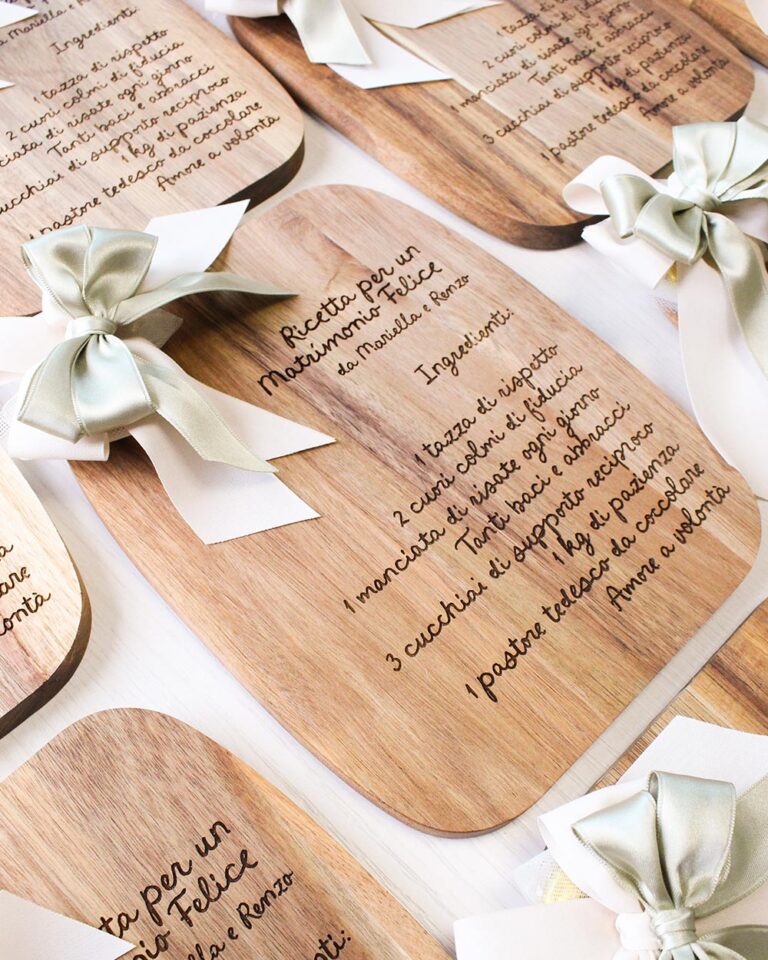 a Mariella e Renzo
Ingredienti:
1 tazza di rispetto
2 cuori colmi di fiducia
manciata di risate ogni giorno
Tanti baci e abbracci
cucchiai di supporto reciproco
1 kg di pazienza
pastore tedesco da coccolare
Amore a volontà
1 tazza di rispetto
2 cuori colmi di fiducia
1 manciata di risate ogni giorno
Tanti baci e abbracci
3 cucchiai di supporto reciproco
1 kg di pazienza
1 pastore tedesco da coccolare
Amore a volontà
Ricetta per un
Matrimonio Felice
da Mariella e Renzo
Ingredienti:
1 tazza di rispetto
2 cuori colmi di fiducia
1 manciata di risate ogni giorno
Tanti baci e abbracci
3 cucchiai di supporto reciproco
1 kg di pazienza
1 pastore tedesco da coccolare
Amore a volontà
are
ontà
ta per un
io Felice
iella e Renzo
nti: